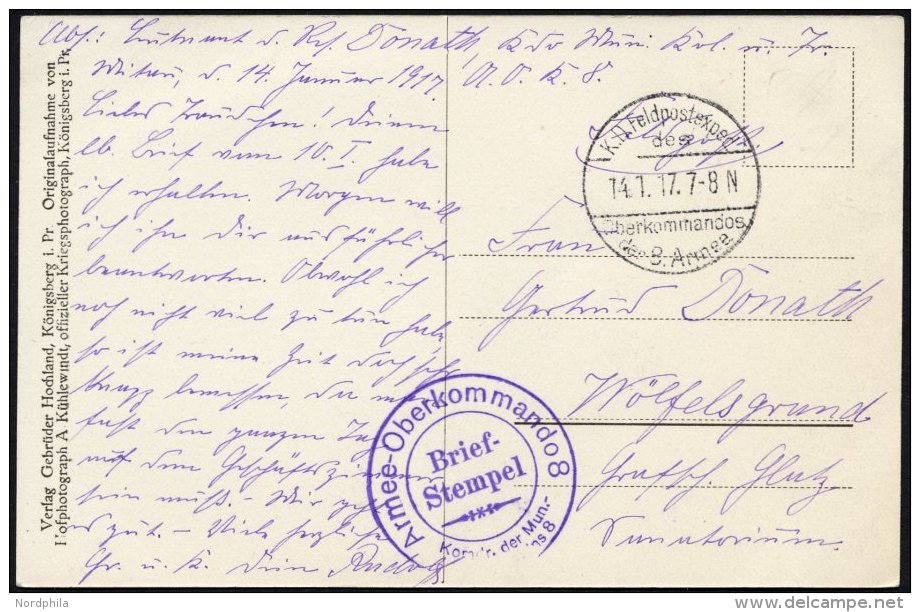 Abs.: Leutnant d. Res. Donath, Kdo Mun. Kol. u. Tr.
Mitau, d. 14. Januar 1917. A. O. K. 8.
Liebes Traudchen! Deinen
lb. Brief vom 10. I. habe
ich erhalten. Morgen will
ich ihn Dir ausführlicher
beantworten. Obwohl ich
noch nicht viel zu tun habe,
so ist meine Zeit doch sehr
knapp bemessen, da
fast den ganzen Tag
auf dem Geschäftszimmer
sein muß. - Mir geht
es gut. - Viele herzliche
Gr. u. K. Dein Rudolf
Feldpost.
K.D. Feldpostexped.
des
14.1.17.7-8 N
Oberkommandos
der 8. Armee
Frau
Gertrud Donath
Wölfelsgrund
Grafsch. Glatz
Sanatorium.
Armee-Oberkommando 8
Brief-
Stempel
der Mun.-
Verlag Gebrüder Hochland, Königsberg i. Pr Originalaufnahme von
Hofphotograph A Kühlewindt, offizieller Kriegsphotograph, Königsberg i. Pr.
Nordphila
delcampe.net